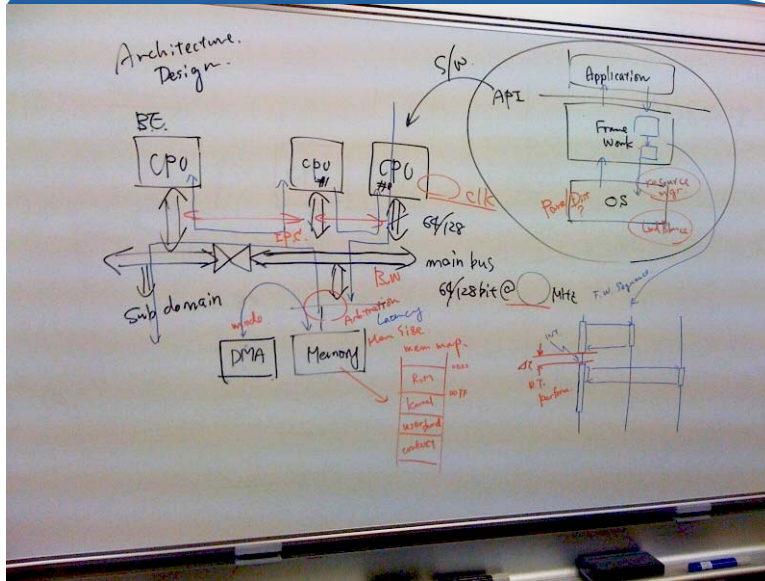 Architecture.
Design.
S/W.
API
Application
Frame
Work
OS
resource
mgr.
B.E.
CPU
CPU
#1
CPU
#0
clk
64/128
IPC
main bus
B.W
64/128bit@ MHz
Sub domain
Arbitration
Latency
mode
DMA
Memory
Mem Size
mem map.
ROM
kernel
userland
context
F.W. Sequence
INT.
R.T.
perform.